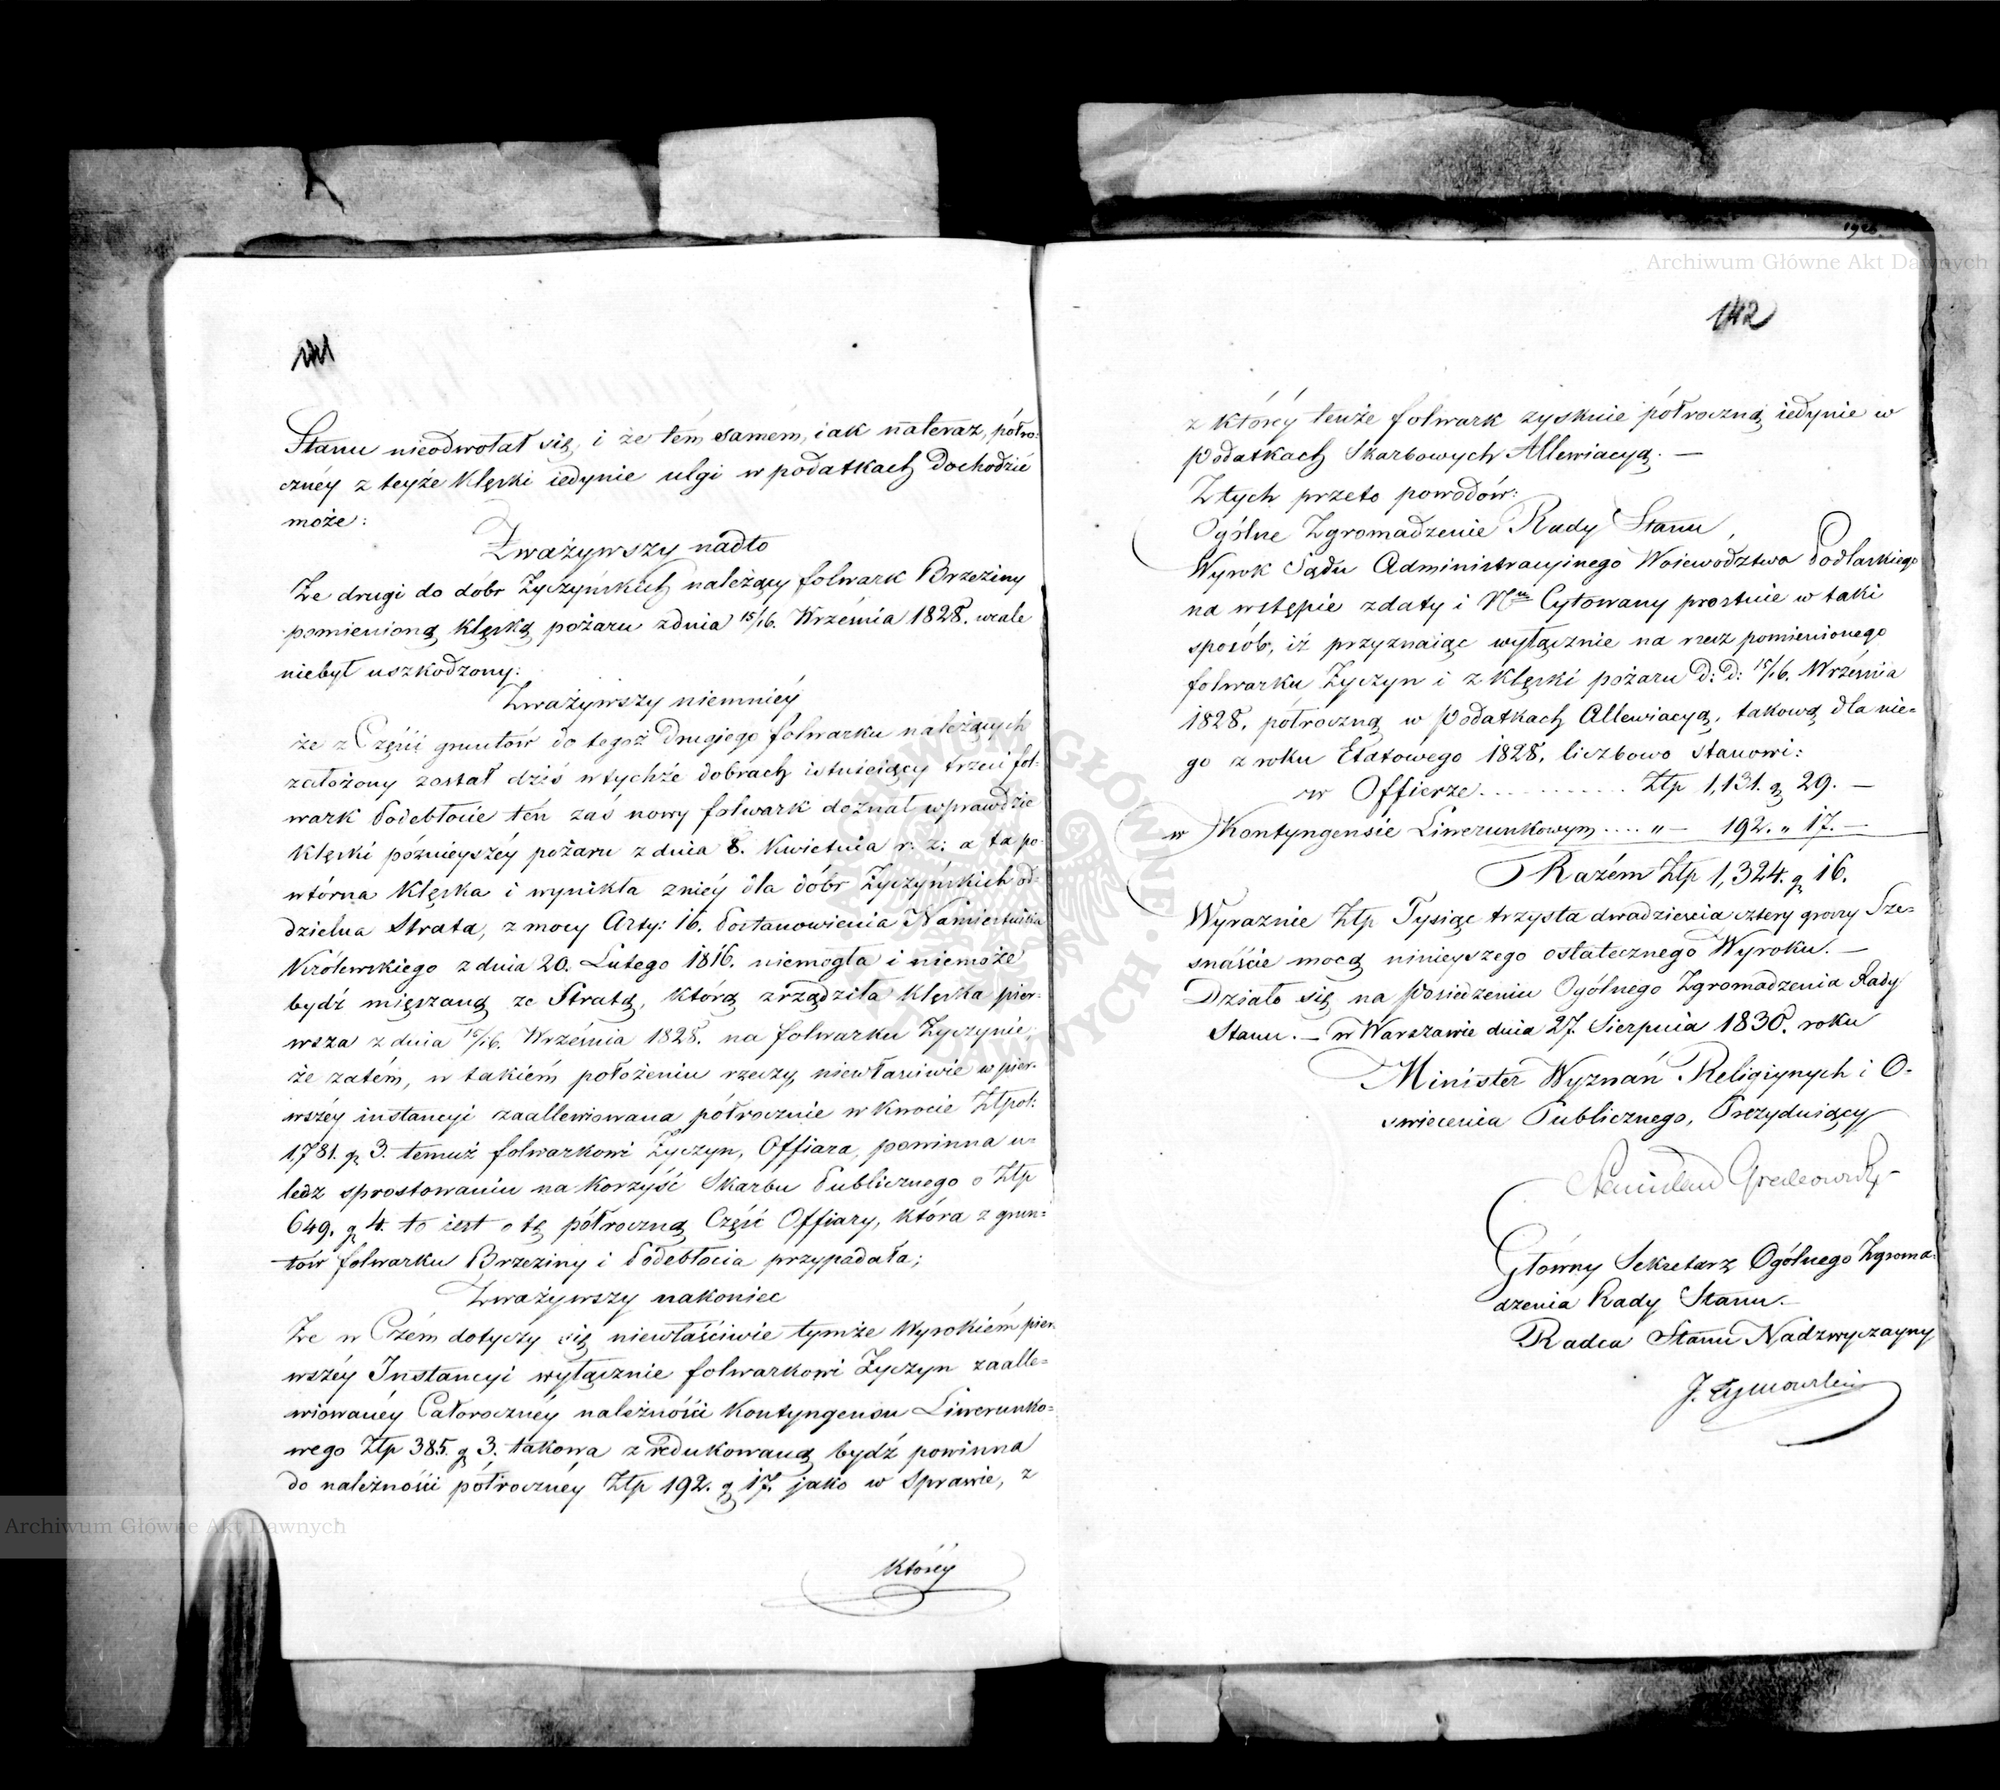 141
Stanu nieodwołał się, i że tém samém, iak nateraz, półro=
cznéy z teyże klęski iedynie ulgi w podatkach dochodzić
może:
Zważywszy nadto
Że drugi do dóbr Życzyńskich należący folwark Brzeziny
pomienioną klęską pożaru z dnia 15/16. Września 1828. wcale
niebył uszkodzony:
Zważywszy niemniéy
że z Części gruntów do tegoż drugiego folwarku należących
założony został dziś w tychże dobrach istnieiący trzeci fol-
wark Podebłocie ten zaś nowy folwark doznał wprawdzie
klęski późnieyszéy pożaru z dnia 8. Kwietnia r: z: a ta po-
wtórna klęska i wynikła z niéy dla dóbr Życzyńskich od-
dzielna Strata, z mocy Arty: 16. Postanowienia Namiestnika
Królewskiego z dnia 20. Lutego 1816. niemogła i niemoże
bydź mięszaną ze Stratą, którą zrządziła klęska pier-
wsza z dnia 15/16. Września 1828. na folwarku Życzynie;
że zatém, w takiém położeniu rzeczy, niewłaściwie w pier-
wszéy instancyi zaallewiowana półrocznie w kwocie Złpol:
1,781. g 3. temuż folwarkowi Życzyn, Offiara, powinna u-
ledz sprostowaniu na korzyść Skarbu Publicznego o Złp
649. g 4. to iest o tę półroczną Część Offiary, która z grun-
tów folwarku Brzeziny i Podebłocia przypadała;
Zważywszy nakoniec
Że w Czém dotyczy się niewłaściwie tymże Wyrokiém pier
wszéy Instancyi wyłącznie folwarkowi Życzyn zaalle=
wiowanéy Całorocznéy należności kontyngensu Liwerunko=
wego Złp 385. g 3. takowa zredukowaną bydź powinna
do należności półrocznéy Złp 192. g 17. jako w Sprawie, z
któréy
192
142
z któréy tenże folwark zyskuie półroczną iedynie w
Podatkach Skarbowych Allewiacyą. —
Z tych przeto powodów:
Ogólne Zgromadzenie Rady Stanu,
Wyrok Sądu Administracyinego Woiewództwa Podlaskiego
na wstępie z daty i Nru Cytowany prostuie w taki
sposób, iż przyznaiąc wyłącznie na rzecz pomienionego
folwarku Życzyn i z klęski pożaru d: d: 15/16. Września
1828. półroczną w Podatkach Allewiacyą, takową dla nie=
go z roku Etatowego 1828. liczbowo stanowi:
w Offierze . . . . . . . . . . . Złp 1,131. g 29. —
w Kontyngensie Liwerunkowym . . . . „ — 192. „ 17. —
Razém Złp 1,324. g 16.
Wyraznie Złp Tysiąc trzysta dwadzieścia cztery groszy Sze=
snaście mocą ninieyszego ostatecznego Wyroku. —
Działo się na Posiedzeniu Ogólnego Zgromadzenia Rady
Stanu. — w Warszawie dnia 27. Sierpnia 1830. roku
Minister Wyznań Religiynych i O-
świecenia Publicznego, Prezyduiący
Stanisław Grabowski
Główny Sekretarz Ogólnego Zgroma-
dzenia Rady Stanu. —
Radca Stanu Nadzwyczayny
J. Tymowski
Archiwum Główne Akt Dawnych
Archiwum Główne Akt Dawnych
ARCHIWUM GŁÓWNE AKT DAWNYCH